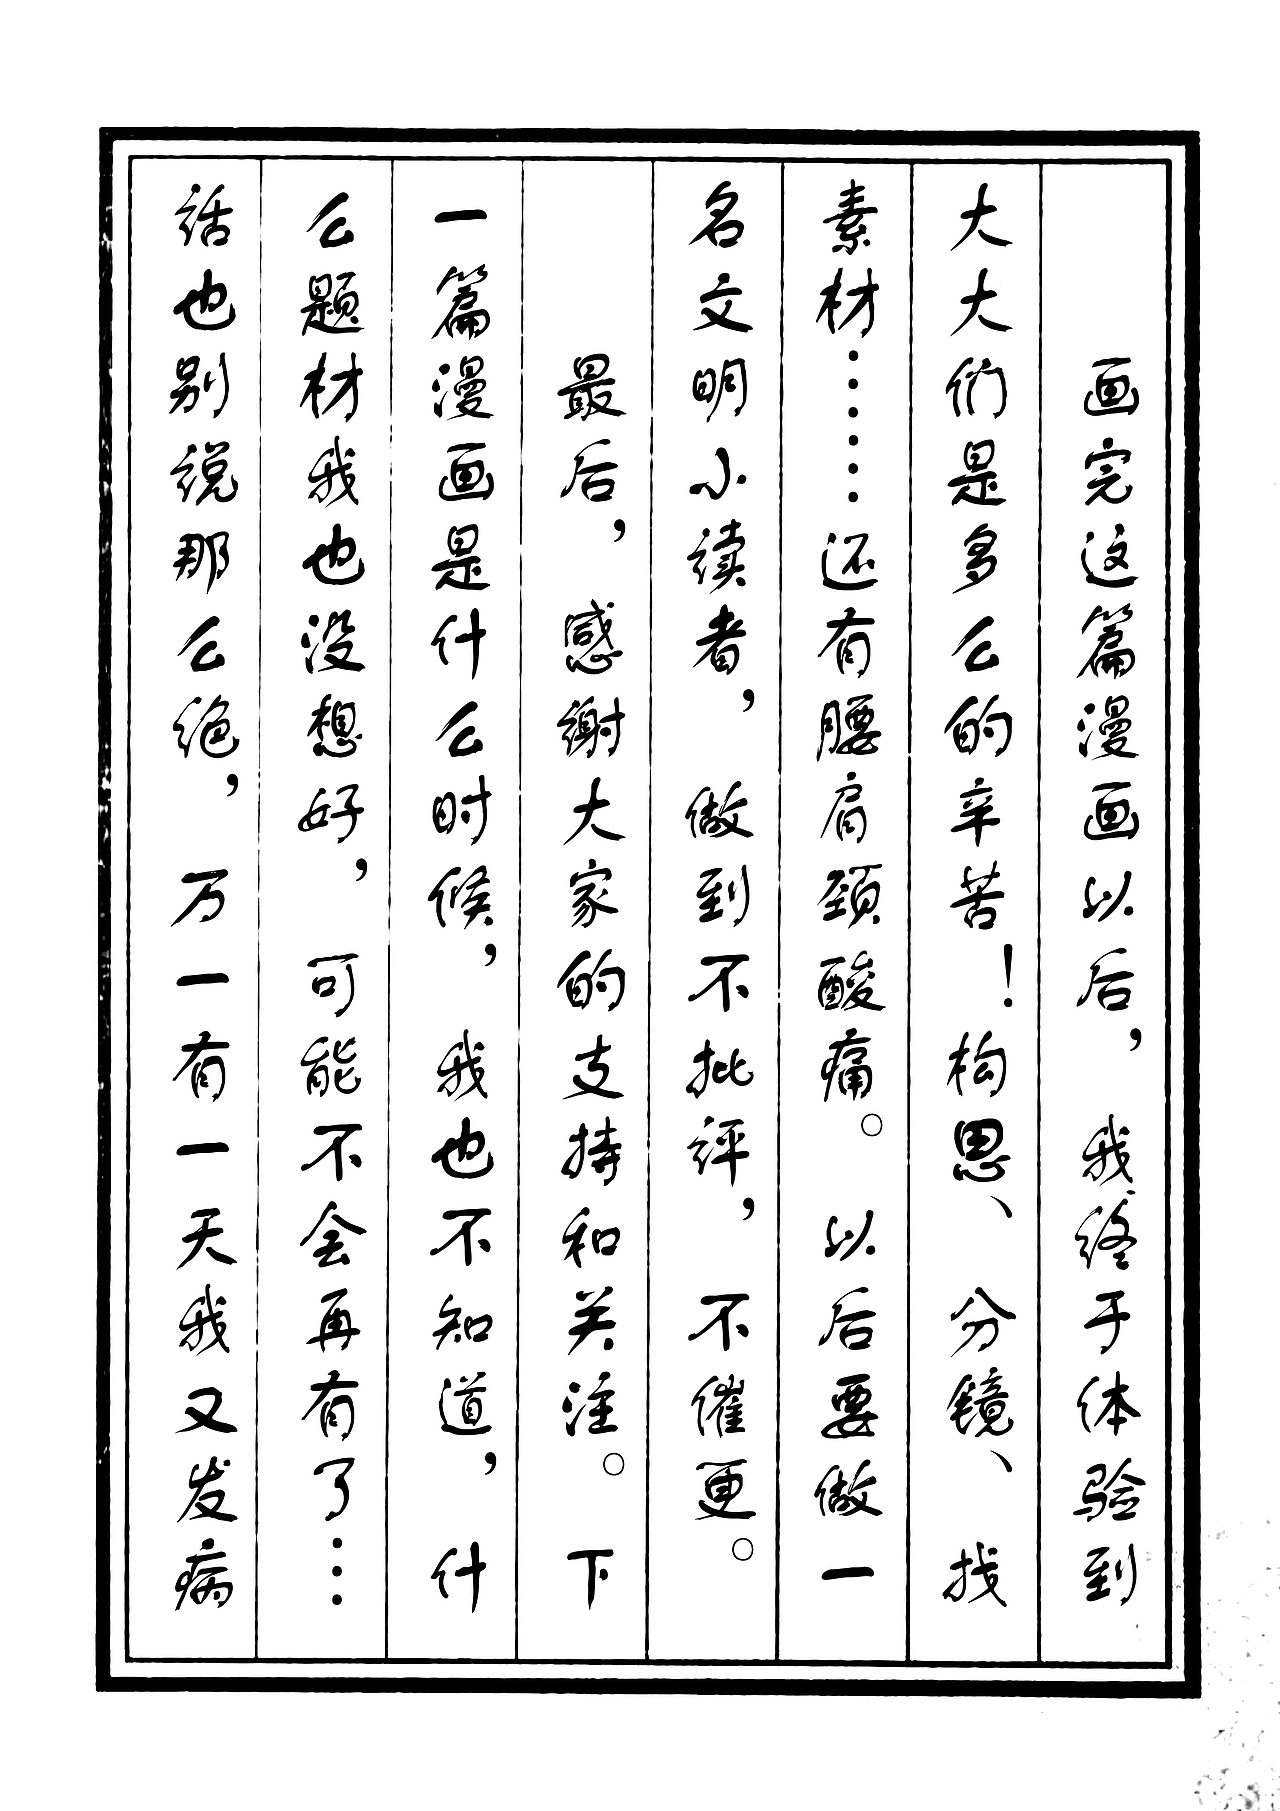 画完这篇漫画以后，我终于体验到
大大们是多么的辛苦！构思、分镜、找
素材……还有腰肩颈酸痛。以后要做一
名文明小读者，做到不批评，不催更。
最后，感谢大家的支持和关注。下
一篇漫画是什么时候，我也不知道，什
么题材我也没想好，可能不会再有了…
话也别说那么绝，万一有一天我又发病